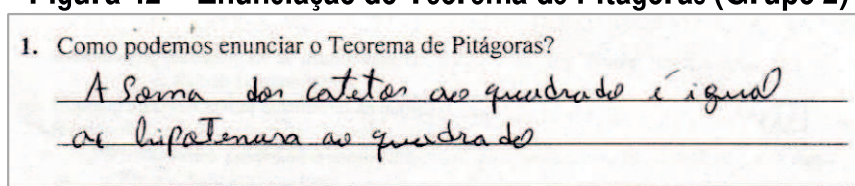 Figura 42 – Enunciação do Teorema de Pitágoras (Grupo 2)
1. Como podemos enunciar o Teorema de Pitágoras?
A Soma dos catetos ao quadrado é igual
a hipotenusa ao quadrado